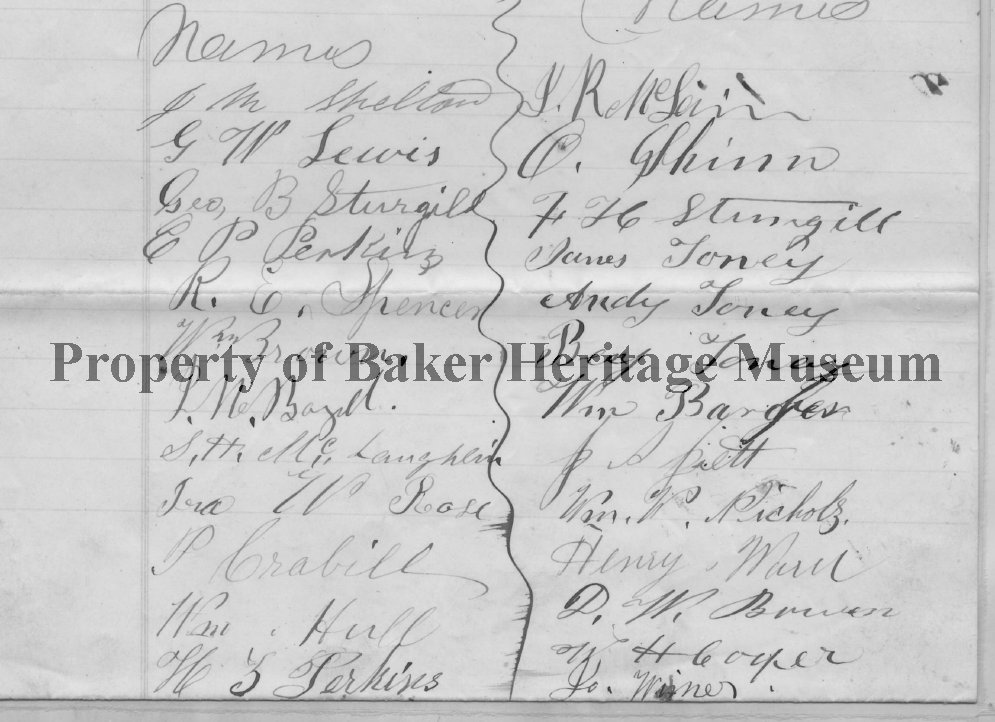 Names
J M Shelton
G W Lewis
Geo, B Sturgill
E P Perkins
R. E. Spencer
Wm Brown
Property of Baker Heritage Museum
S. H. Mc Laughlin
Ira W Rose
P Crabill
Wm. Hull
H Z Perkins
Names
J. R McLain
O. Shinn
F H Sturgill
James Toney
Andy Toney
Toney
Wm Barnes
Wm. W. Nichols.
Henry Ward
D. W. Bowen
W H Cooper
Jo. Wisner.